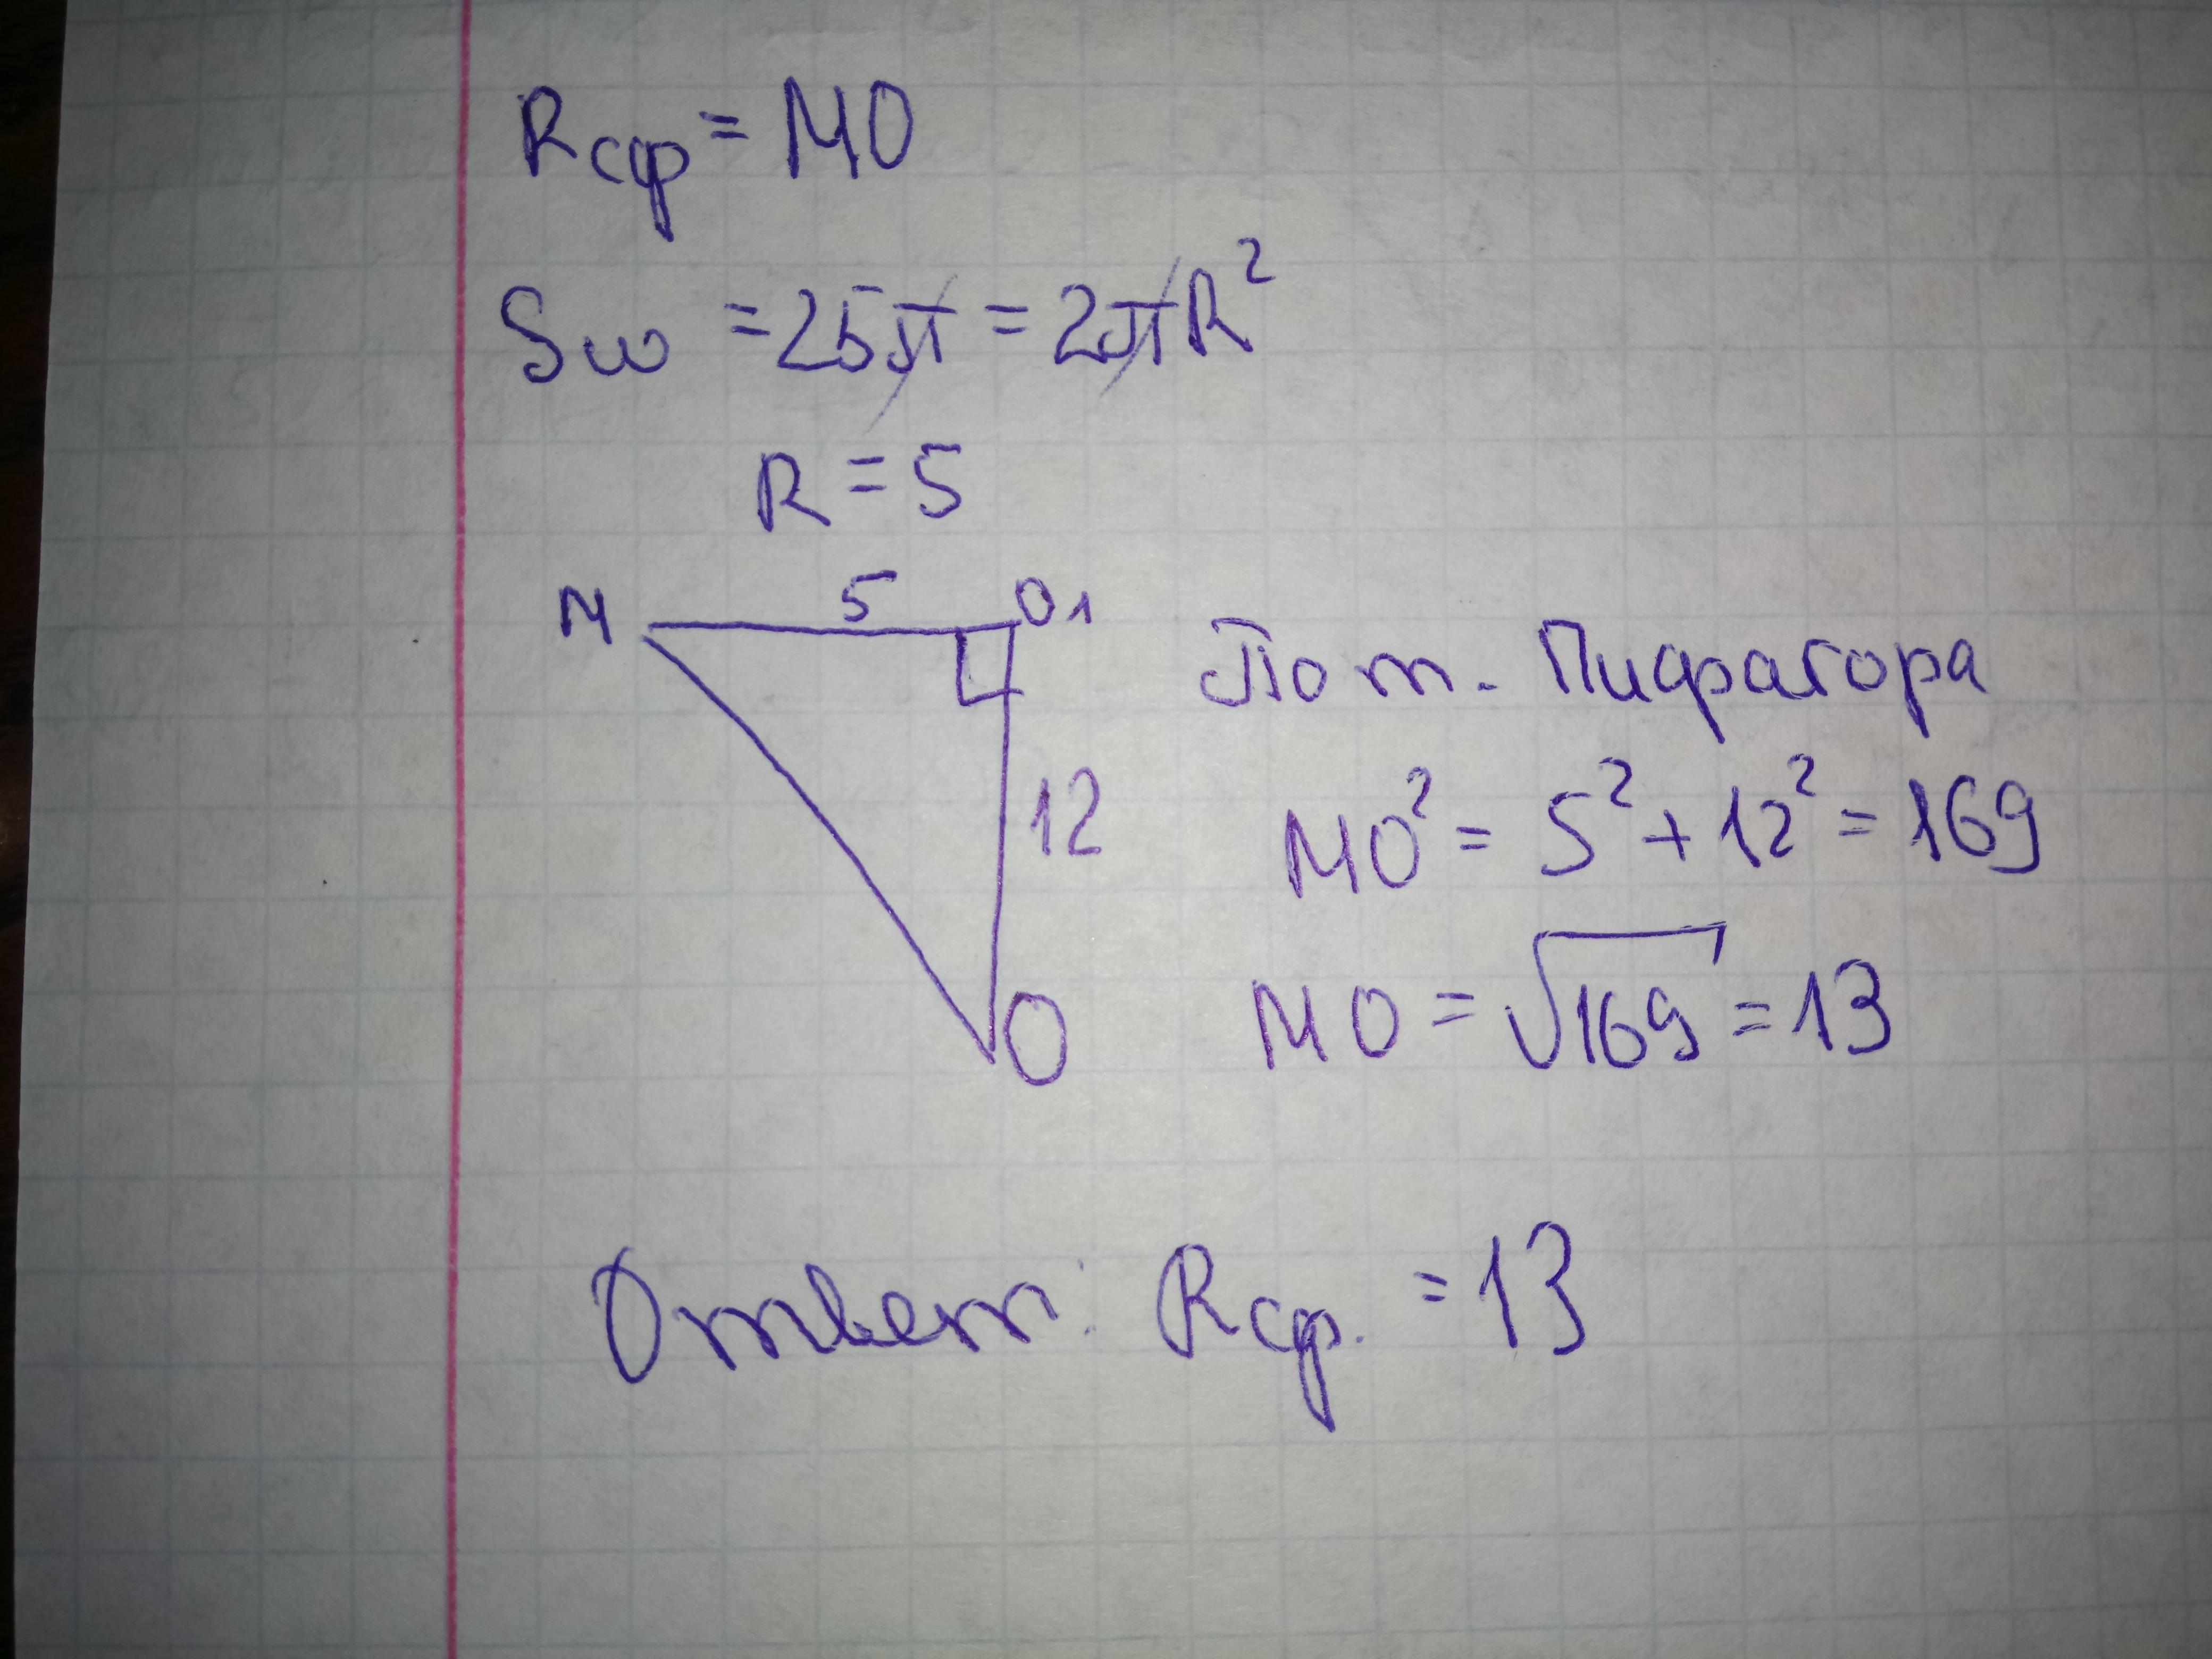 Rсф = MO
Sω = 25π = 2πR²
R = 5
M 5 O₁
По т. Пифагора
12
MO² = 5² + 12² = 169
MO = √169 = 13
O
Ответ: Rсф. = 13